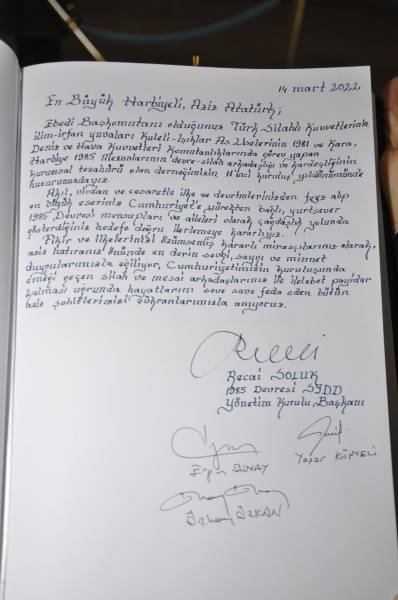 14 mart 2022
En Büyük Harbiyeli, Aziz Atatürk;
Ebedi Başkomutanı olduğunuz Türk Silahlı Kuvvetlerinin
ilim-irfan yuvaları Kuleli-Işıklar As. Liselerinin 1981 ve Kara,
Deniz ve Hava Kuvvetleri Komutanlıklarında görev yapan
Harbiye 1985 Mezunlarının devre-silah arkadaşlığı ve kardeşliğinin
kurumsal tezahürü olan derneğimizin kuruluş yıldönümünde
huzurunuzdayız.
Akıl, vicdan ve cesaretle ilke ve devrimlerinizden feyz alıp
en büyük eseriniz Cumhuriyet'e yürekten bağlı, yurtsever
1985 Devresi mensupları ve aileleri olarak çağdaşlık yolunda
gösterdiğiniz hedefe doğru ilerlemeye kararlıyız.
Fikir ve ilkelerinizi özümsemiş kararlı mirasçılarınız olarak,
aziz hatıranız önünde en derin sevgi, saygı ve minnet
duygularımızla eğiliyor, Cumhuriyetimizin kuruluşunda
emeği geçen silah ve mesai arkadaşlarınız ile ilelebet payidar
kalması uğrunda hayatlarını seve seve feda eden bütün
aziz şehitlerimizi şükranlarımızla anıyoruz.
Recai SOLUK
1985 Devresi SYDD
Yönetim Kurulu Başkanı
SUNAY
Yaşar KÜNYELİ
Özhan ÖZKAN